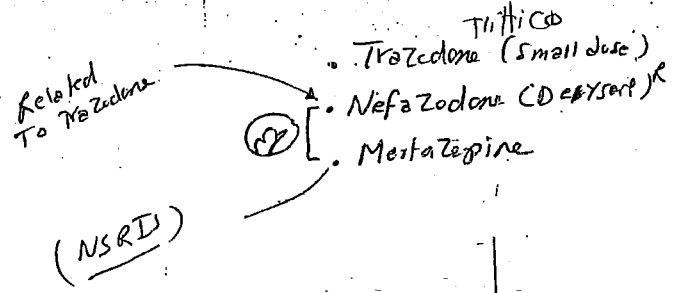 Trittico
• Trazodone (small dose)
Related
To Trazodone
• Nefazodone (Depysert)R
• Mertazepine
(NSRIs)